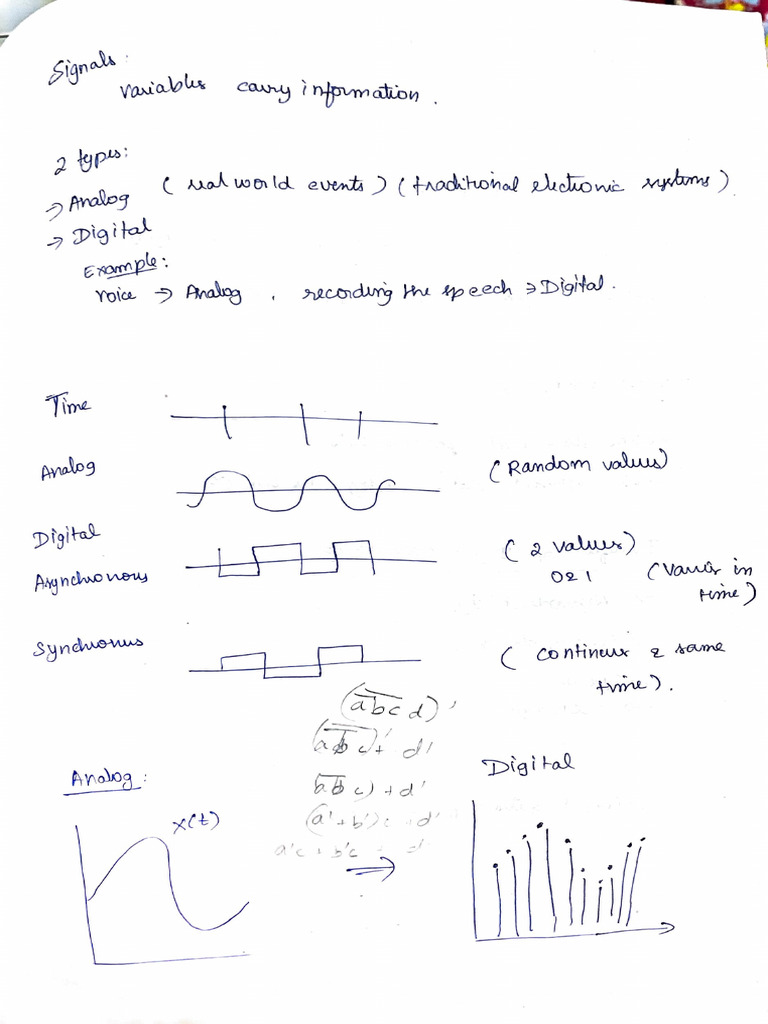 Signals:
variables carry information.
2 types:
→ Analog (real world events) (traditional electronic systems)
→ Digital
Example:
voice → Analog, recording the speech → Digital.
Time
Analog (Random values)
Digital (2 values)
Asynchronous 0 & 1 (varies in
time)
Synchronus ( contineus & same
time).
(abc d)'
+ d'
) + d'
(a' + b')c + d'
a'c + b'c
Analog: Digital
x(t)